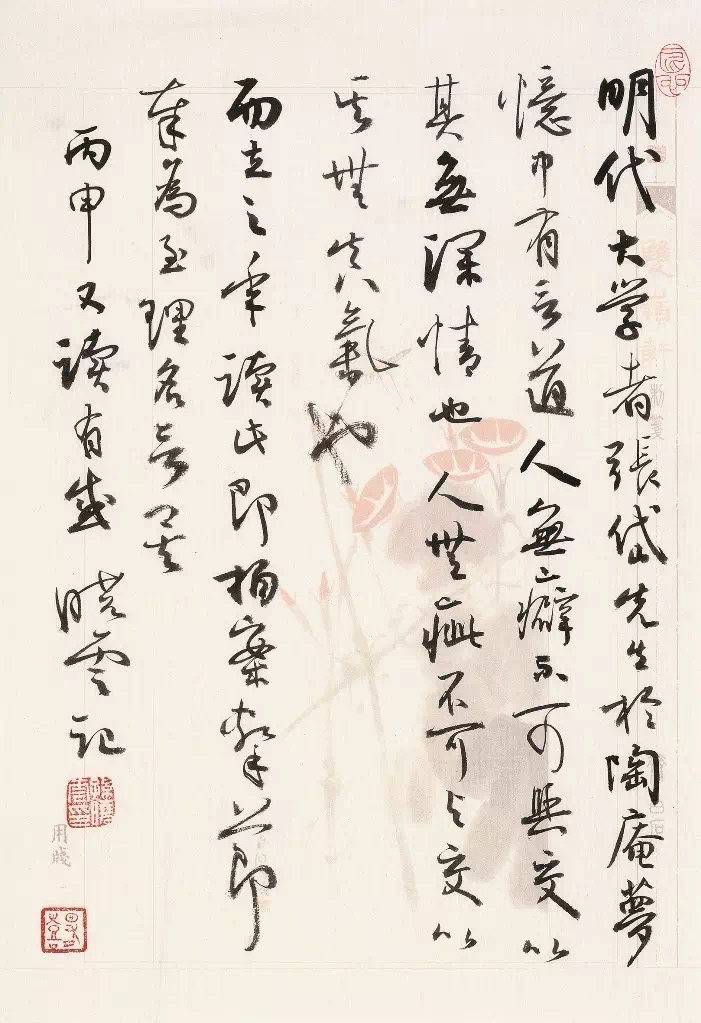 明代大学者張岱先生於陶庵夢
憶中有言道人無癖不可與交以
其無深情也人無疵不可与交以
其無真氣也
而立之年讀此即拍案擊節
奉為至理名言
丙申又讀有感 曉雲記
用牋